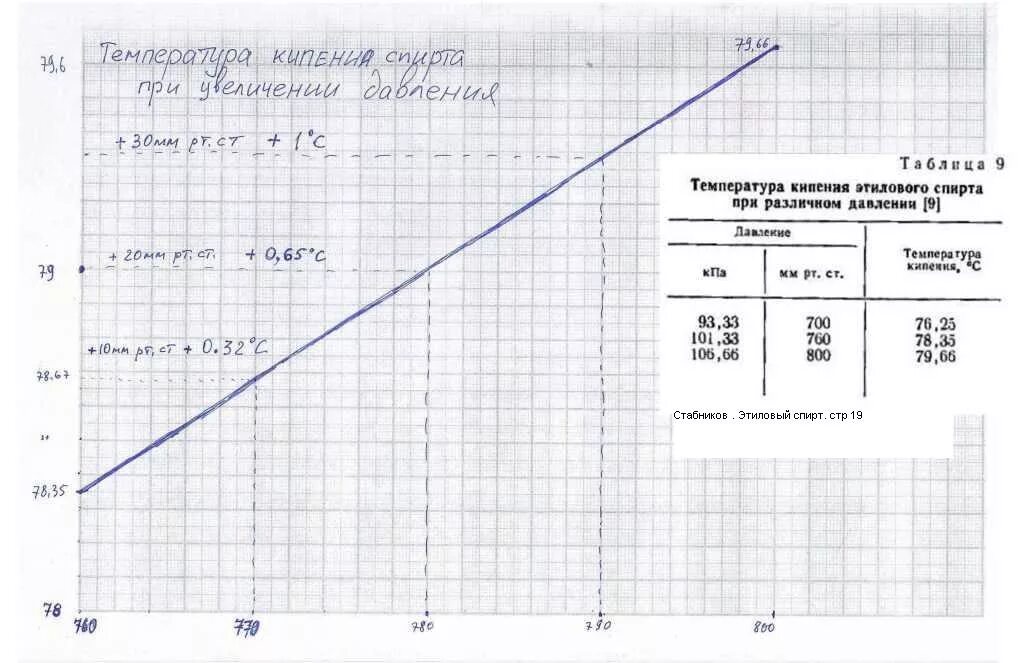 79,6
Температура кипения спирта
при увеличении давления
79,66
+ 30мм рт. ст + 1°С
+ 20мм рт. ст. + 0,65°С
79
+10мм рт, ст + 0.32°С
78.67
78,35
78
760 770 780 790 800
Таблица 9
Температура кипения этилового спирта
при различном давлении [9]
Давление
Температура
кипения, °С
кПа мм рт. ст.
93,33 700 76,25
101,33 760 78,35
106,66 800 79,66
Стабников . Этиловый спирт. стр 19